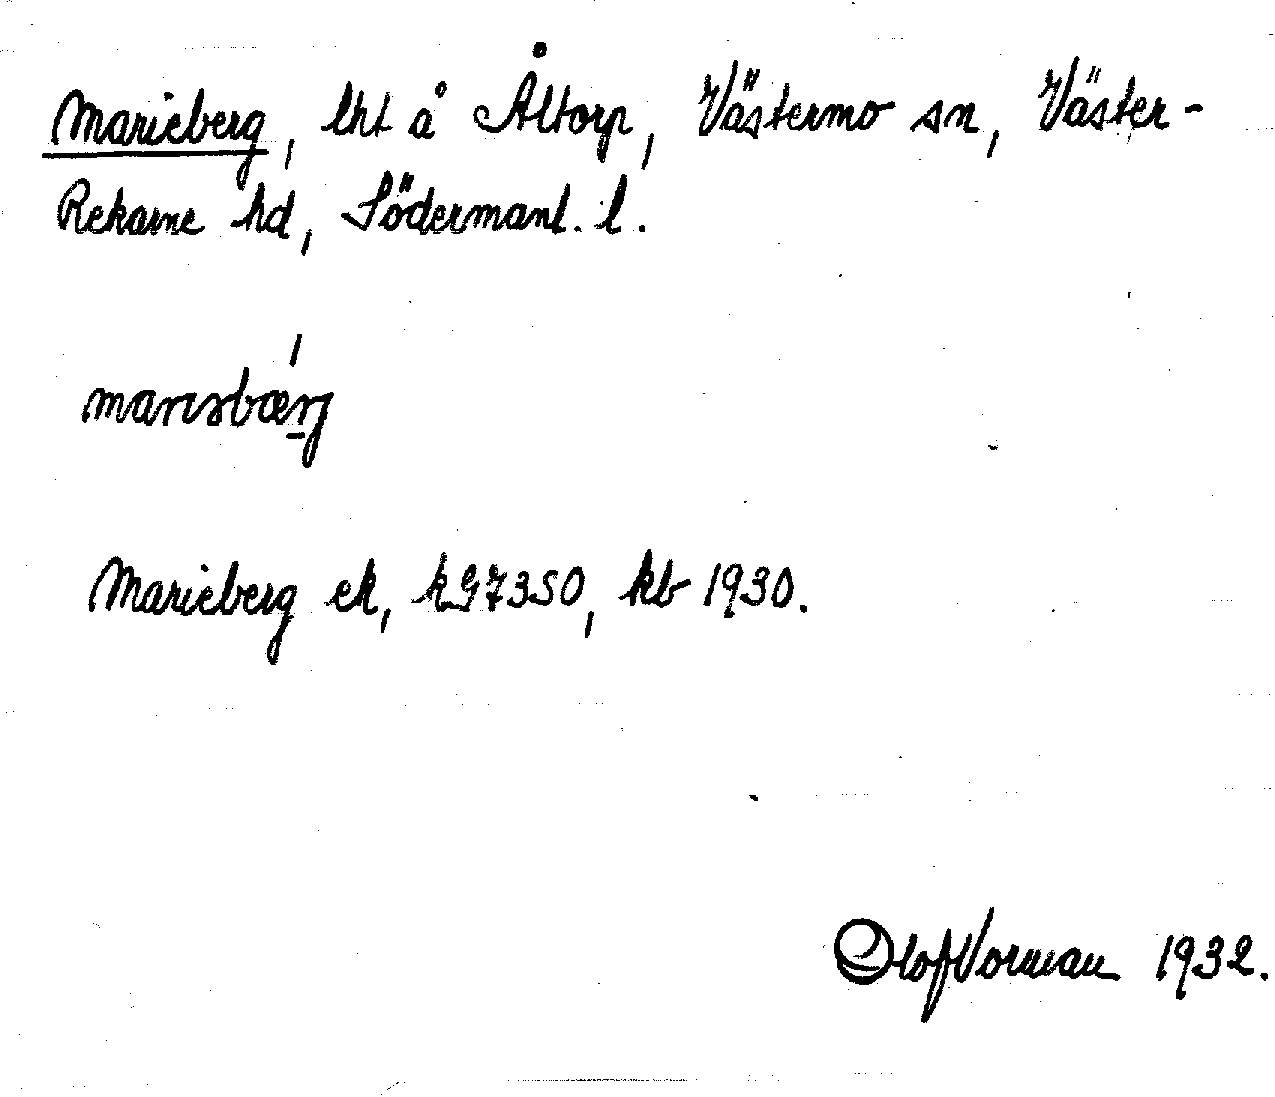 Marieberg, lht å Åltorp, Västermo sn, Väster-
Rekarne hd, Södermanl. l.
marısbærj
Marieberg ek, kG7350, kb 1930.
Olof Vorman 1932.